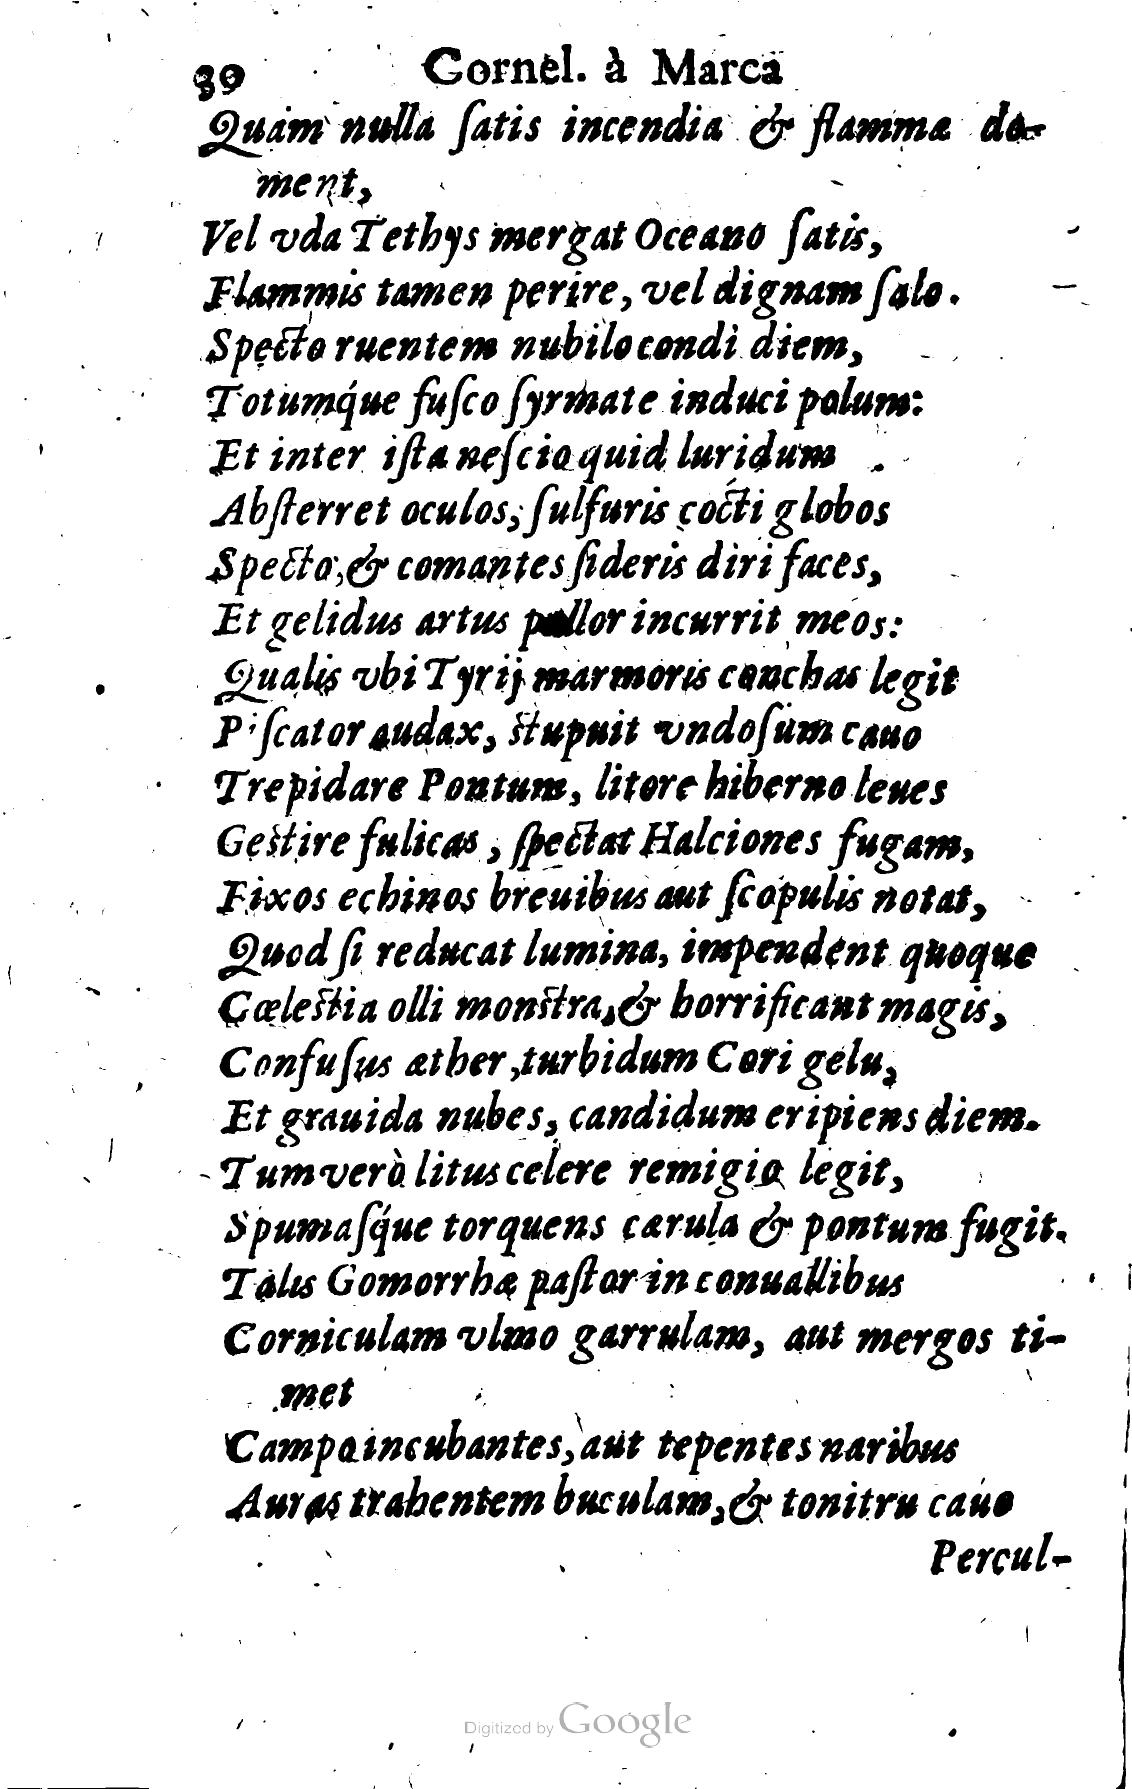 39 Cornel. à Marca
Quàm nulla ſatis incendia & flammæ do-
ment,
Vel vda Tethys mergat Oceano ſatis,
Flammis tamen perire, vel dignam ſalo.
Specto ruentem nubilo condi diem,
Totumq́ue fuſco ſyrmate induci polum:
Et inter iſta neſcio quid luridum
Abſterret oculos; ſulfuris cocti globos
Specto, & comantes ſideris diri faces,
Et gelidus artus pallor incurrit meos:
Qualis vbi Tyrij marmoris conchas legit
Piſcator audax, stupuit vndoſùm cauo
Trepidare Pontum, litore hiberno leues
Gestire fulicas, ſpectat Halciones fugam,
Fixos echinos breuibus aut ſcopulis notat,
Quod ſi reducat lumina, impendent quoque
Cœlestia olli monstra, & horrificant magis,
Confuſus æther, turbidum Cori gelu,
Et grauida nubes, candidum eripiens diem.
Tum verò litus celere remigio legit,
Spumaſq́ue torquens cærula & pontum fugit.
Talis Gomorrhæ paſtor in conuallibus
Corniculam vlmo garrulam, aut mergos ti-
met
Campo incubantes, aut tepentes naribus
Auras trahentem buculam, & tonitru cauo
Percul-
Digitized by Google